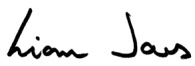 Liam Jaes